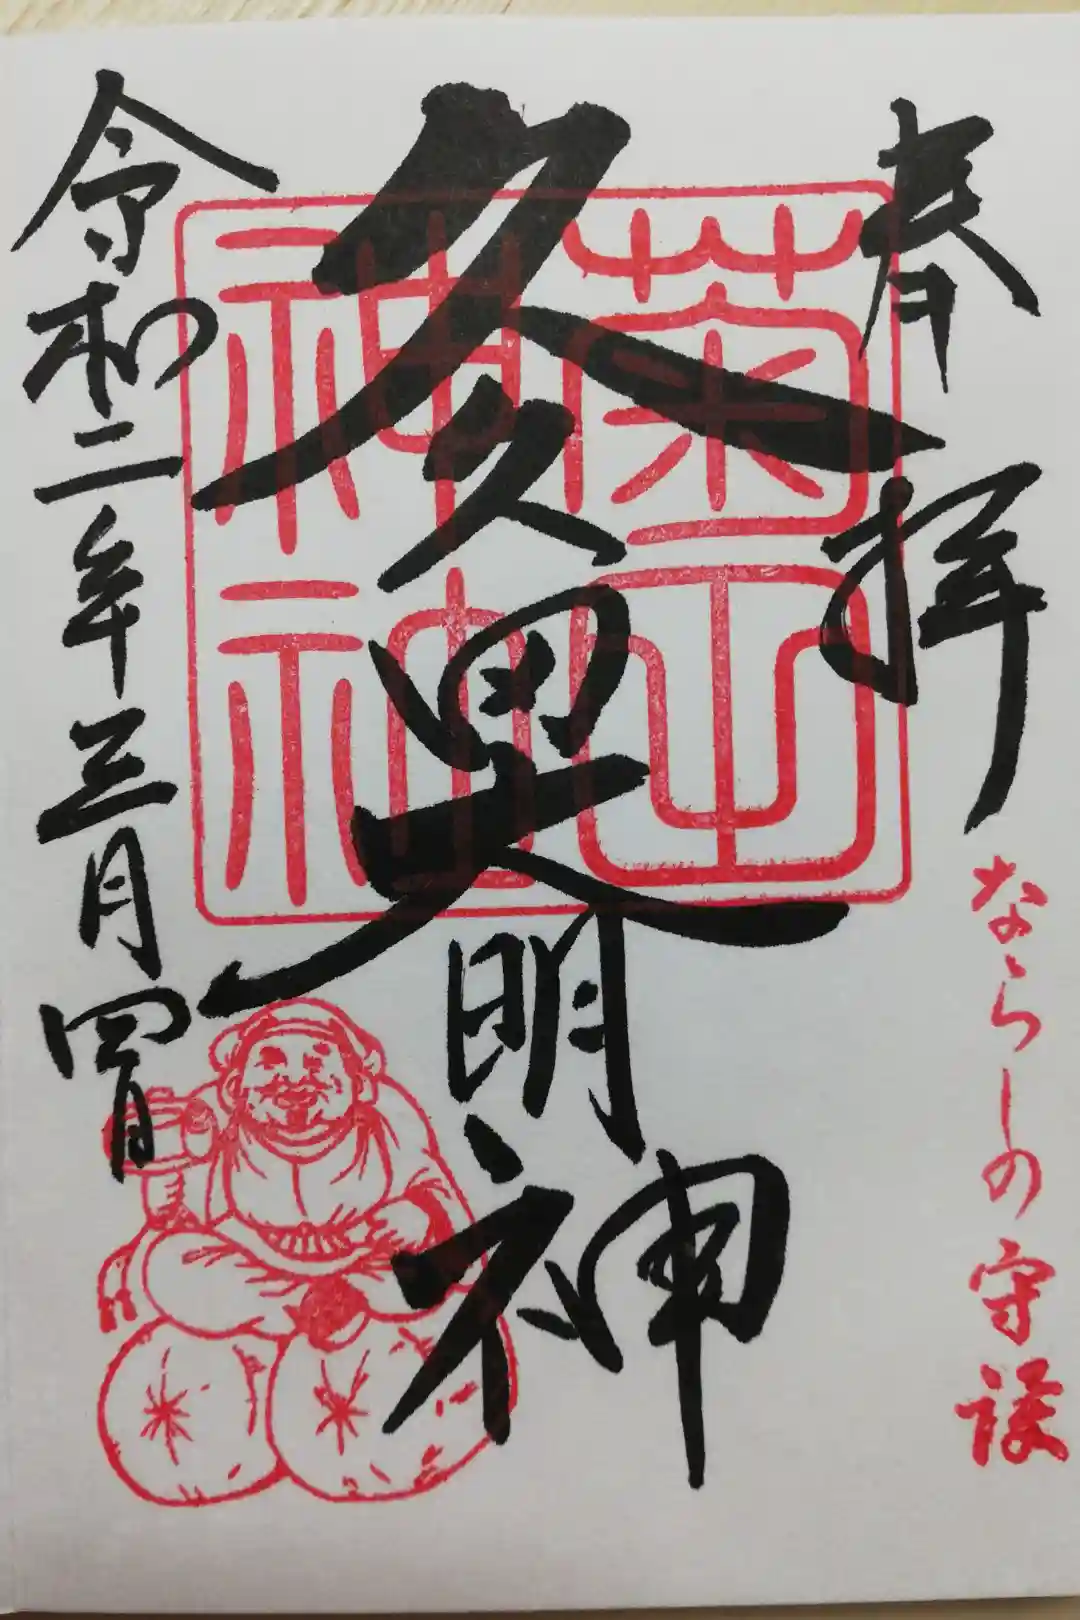 奉拝
ならしの守護
久久田大明神
令和二年三月四日
菊田
神社